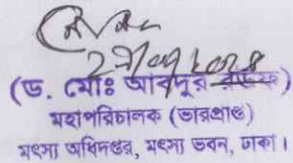 (ড. মোঃ আবদুর রউফ)
মহাপরিচালক (ভারপ্রাপ্ত)
মৎস্য অধিদপ্তর, মৎস্য ভবন, ঢাকা।